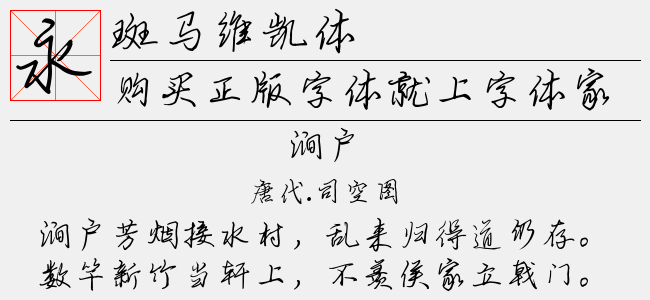 永
斑马维凯体
购买正版字体就上字体家
涧户
唐代.司空图
涧户芳烟接水村，乱来归得道仍存。
数竿新竹当轩上，不羡侯家立戟门。